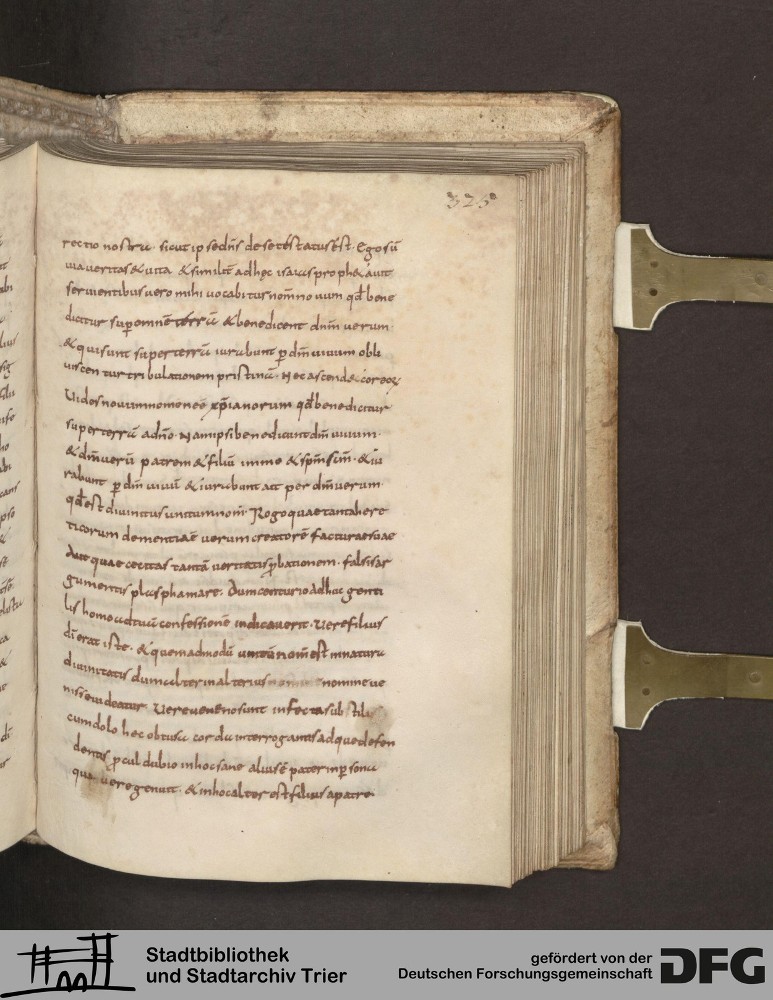 325
rectio nostra sicut ipse dn̄s de se testatus est. Ego sū
via veritas & uita & similit̄ ad hęc isaias propheta ait
seruientibus uero mihi uocabitur nomen nouum qd̄ bene
dicitur sup omnē terrā & benedicent dn̄m uerum
& qui sunt super terrā iurabunt p dn̄m uiuum obli
uiscentur tribulationem pristinā. Nec ascend& cor eoꝝ
Vides nouum nomen eē xp̄ianorum qd̄ benedicitur
super terrā a dn̄o. Nam ipsi benedicunt dn̄m uiuum.
& dn̄m uerū patrem & filiū immo & sp̄m sc̄m. & iu
rabunt p dn̄m uiuū & iurabunt per dn̄m uerum.
qd̄ est diuinitus unitum nom̄. Rogo quae tanta here
ticorum dementia ē uerum creatorē facturae suae
Aut quae cecitas tantā ueritatis p̱bationem. falsis ar
gumentis plasphamare. Dum centurio adhuc genti
lis homo uduā confessionē indicauerit. Vere filius
dī erat iste. & quemadmodū nom̄ est in natura
diuinitatis dum alter in alterius nomine ue
nisse uideatur. Vere uenenosum infecta sub
cum dolo hec obtusa corda interrogantis adque defen
dentis p̱cul dubio in hoc sane alius ē pater in p̱sona
quia uere genuit. & in hoc alter est filius a patre
Stadtbibliothek
und Stadtarchiv Trier
gefördert von der
Deutschen Forschungsgemeinschaft
DFG